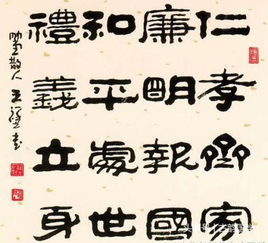 仁孝家
廉明報國
和平處世
禮義立身
散人王書